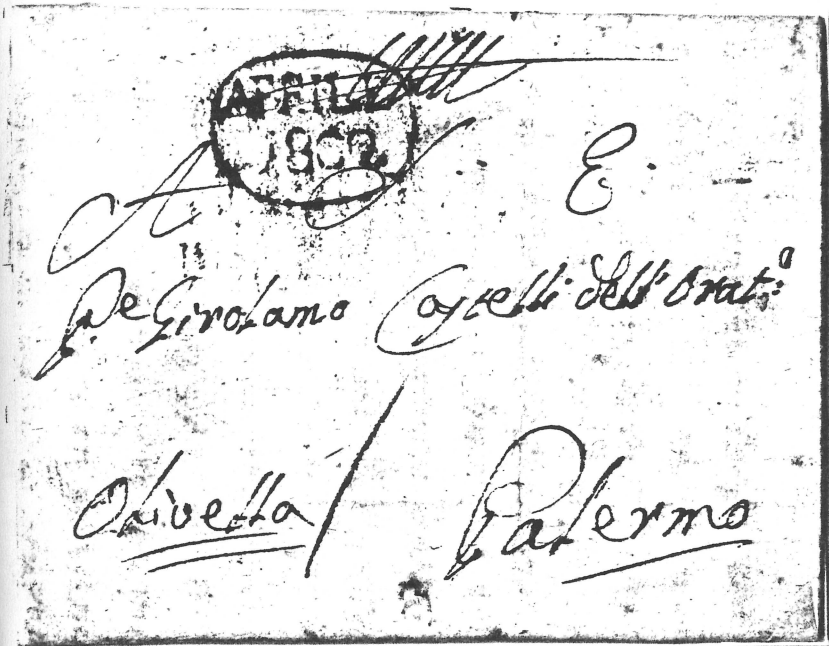 APRILE
1802
A S. E.
Il
P.e Girolamo Castelli dell'Orat.o
Olivella / Palermo